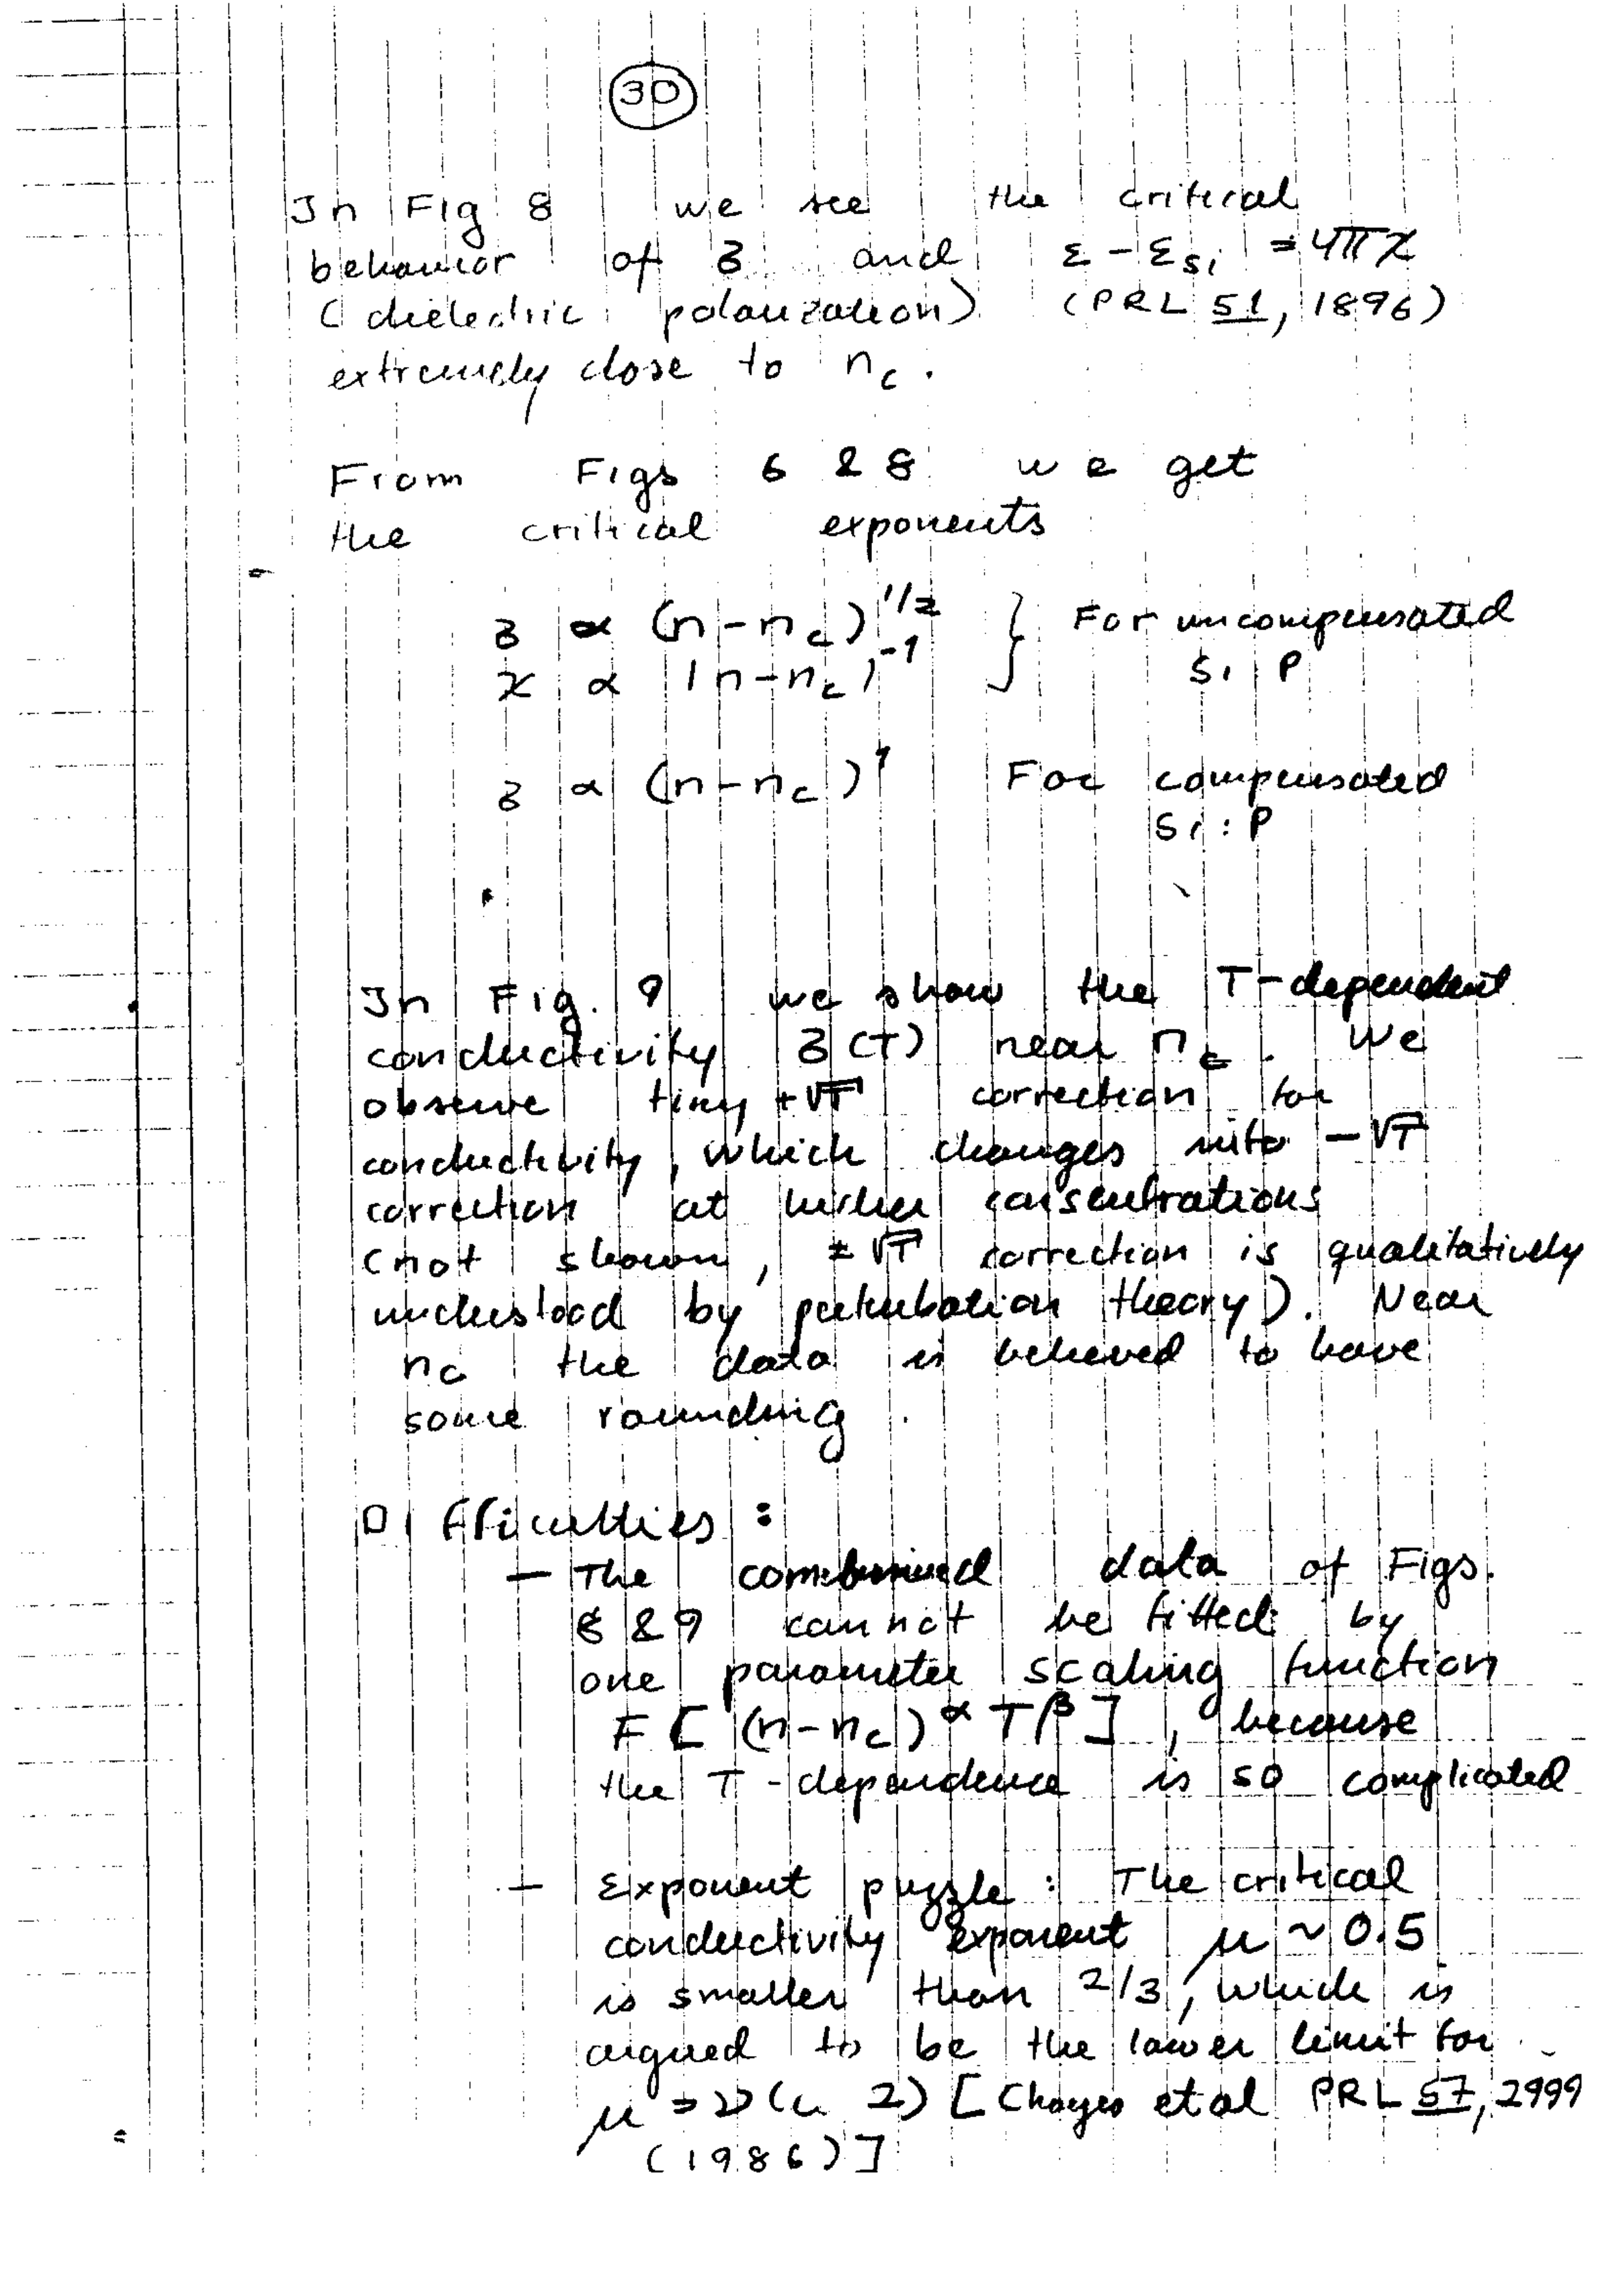 30
In Fig 8 we see the critical
behavior of σ and ε - ε_Si = 4πχ
(dielectric polarization) (PRL 51, 1896)
extremely close to n_c.
From Figs 6 & 8 we get
the critical exponents
σ ∝ (n-n_c)^1/2 } For uncompensated
χ ∝ |n-n_c|^-1 Si:P
σ ∝ (n-n_c)^1 For compensated
Si:P
In Fig. 9 we show the T-dependent
conductivity σ(T) near n_c. We
observe tiny +√T correction for
conductivity, which changes into -√T
correction at higher consentrations
(not shown, ±√T correction is qualitatively
understood by perturbation theory). Near
n_c the data is believed to have
some rounding.
Difficulties:
- The combined data of Figs.
8 & 9 cannot be fitted by
one parameter scaling function
F[(n-n_c)^α T^β], because
the T-dependence is so complicated
- Exponent puzzle: The critical
conductivity exponent μ ~ 0.5
is smaller than 2/3, which is
argued to be the lower limit for
μ = ν 2) [Chayes et al PRL 57, 2999
(1986)]